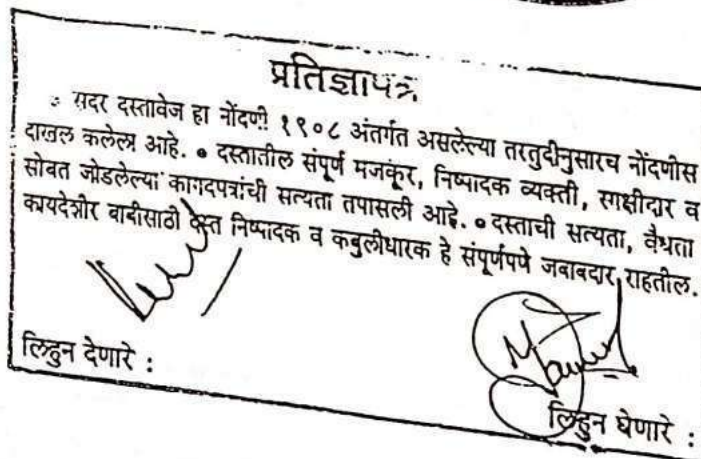 प्रतिज्ञापत्र
• सदर दस्तावेज हा नोंदणी १९०८ अंतर्गत असलेल्या तरतुदीनुसारच नोंदणीस
दाखल कलेला आहे. • दस्तातील संपूर्ण मजकूर, निष्पादक व्यक्ती, साक्षीदार व
सोबत जोडलेल्या कागदपत्रांची सत्यता तपासली आहे. • दस्ताची सत्यता, वैधता
कायदेशीर बाबीसाठी दस्त निष्पादक व कबुलीधारक हे संपूर्णपणे जबाबदार राहतील.
लिहुन देणारे :
लिहुन घेणारे :